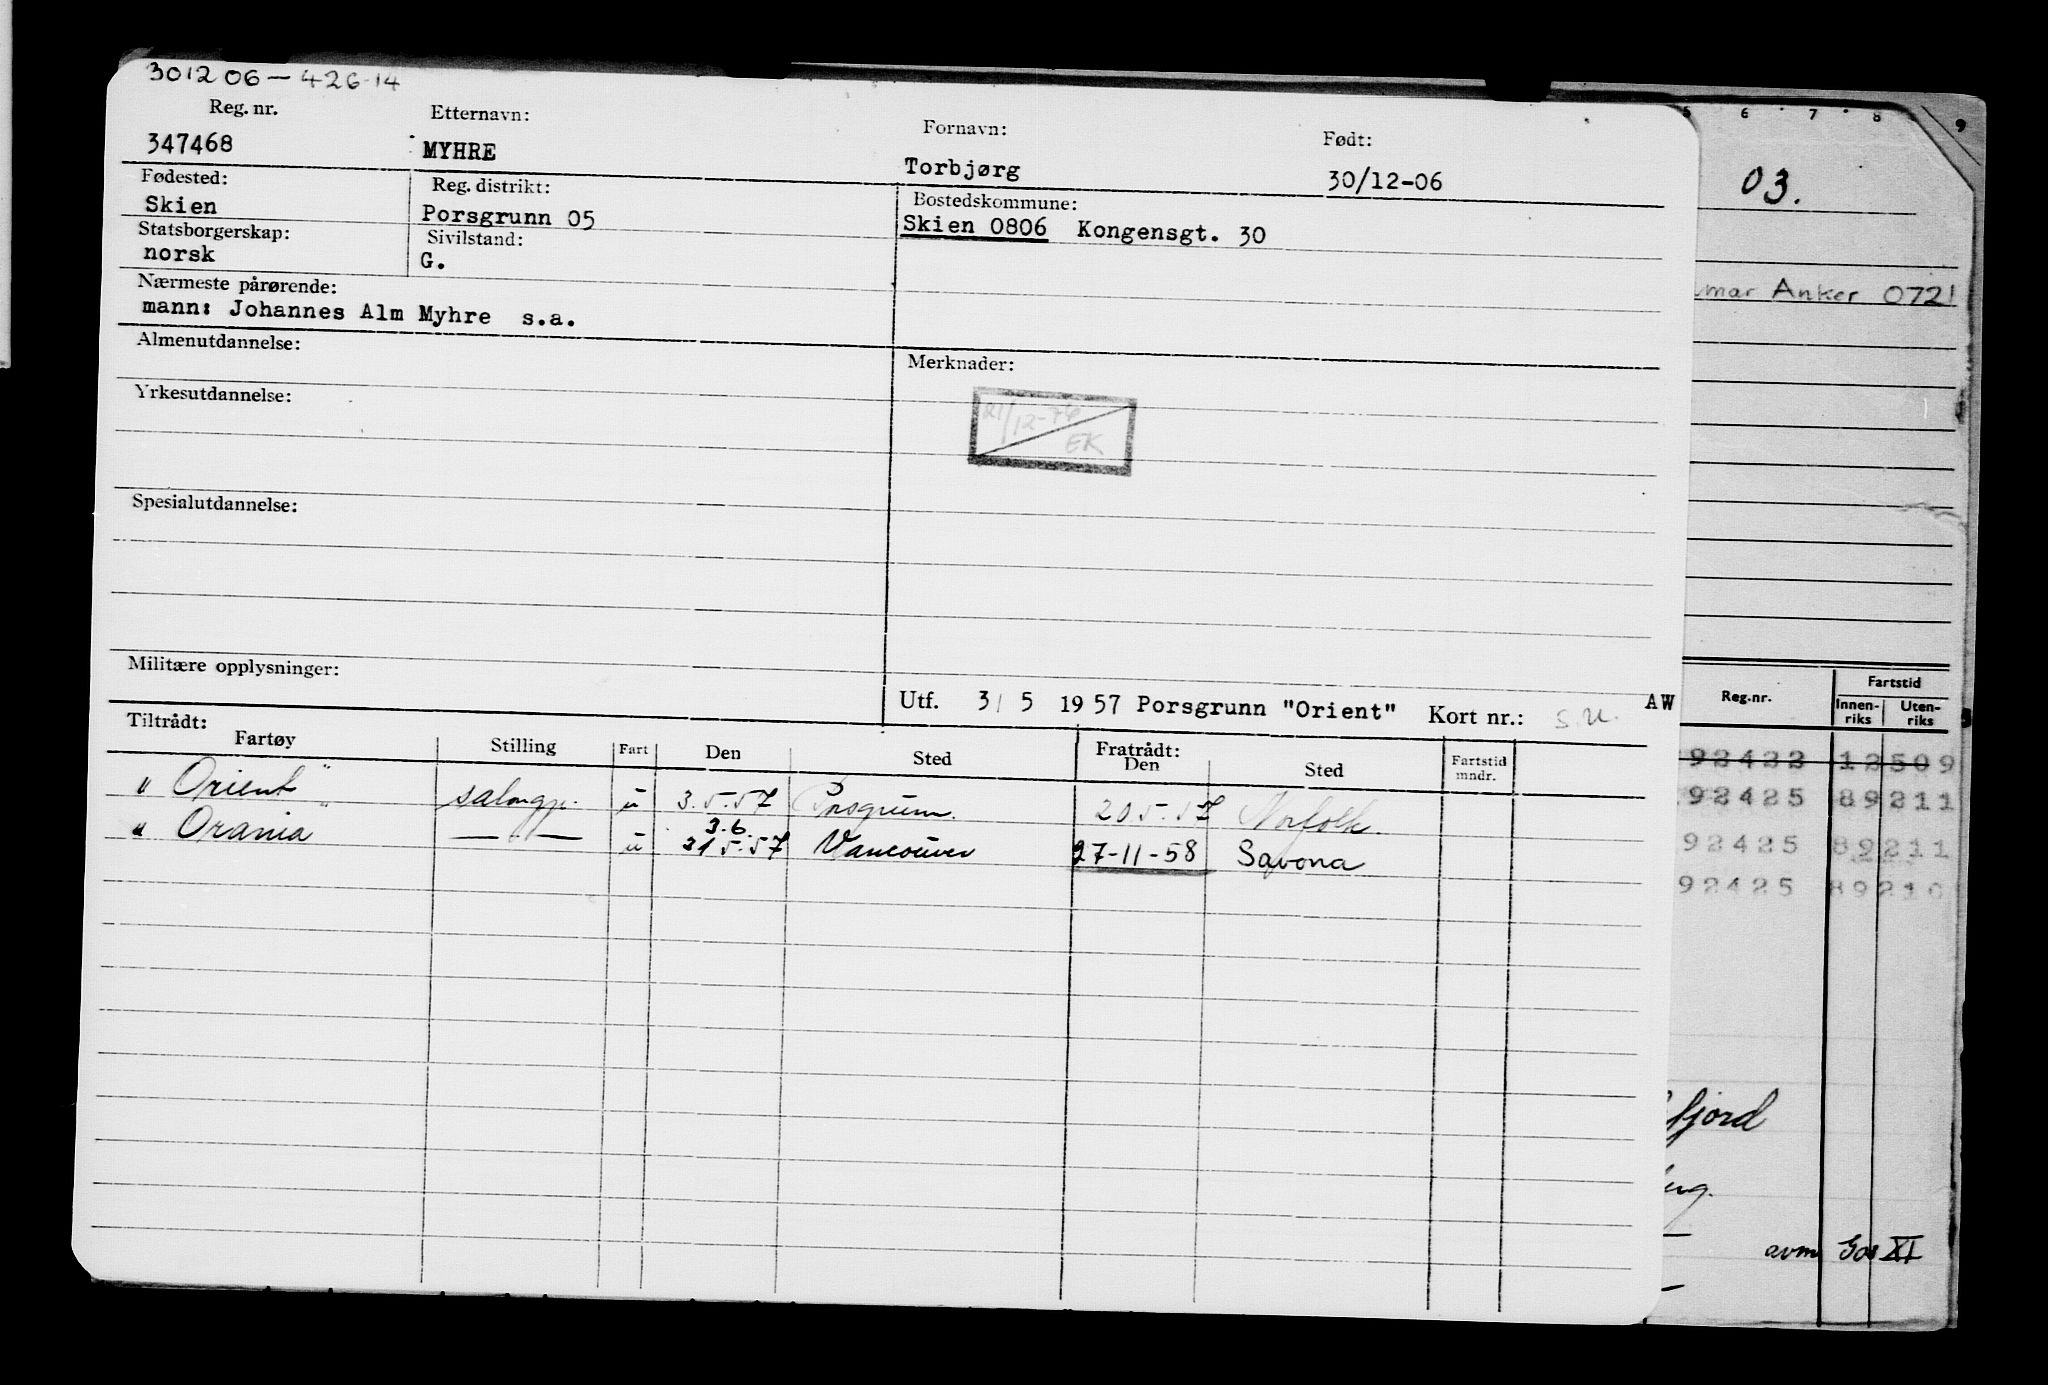 301206-42614
Reg. nr.
347468
Etternavn:
MYHRE
Fornavn:
Torbjørg
Født:
30/12-06
Fødested:
Skien
Reg. distrikt:
Porsgrunn 05
Bostedskommune:
Skien 0806 Kongensgt. 30
Statsborgerskap:
norsk
Sivilstand:
G.
Nærmeste pårørende:
mann: Johannes Alm Myhre s.a.
Almenutdannelse:
Merknader:
21/12-76
EK
Yrkesutdannelse:
Spesialutdannelse:
Militære opplysninger:
Utf. 3/ 5 1957 Porsgrunn "Orient" Kort nr.: S.U. AW
Tiltrådt: Fratrådt:
Fartøy Stilling Fart Den Sted Den Sted Fartstid mndr.
"Orient" salongp. u 3.5.57 Porsgrunn. 20 5.57 Norfolk.
3.6.
"Orania" — — u 31 5.57 Vancouver 27-11-58 Savona
5 6 7 8 9
03.
Anker 0721
Reg.nr. Fartstid
Innenriks Utenriks
92422 12509
92425 89211
92425 89211
92425 89210
fjord
avm XI